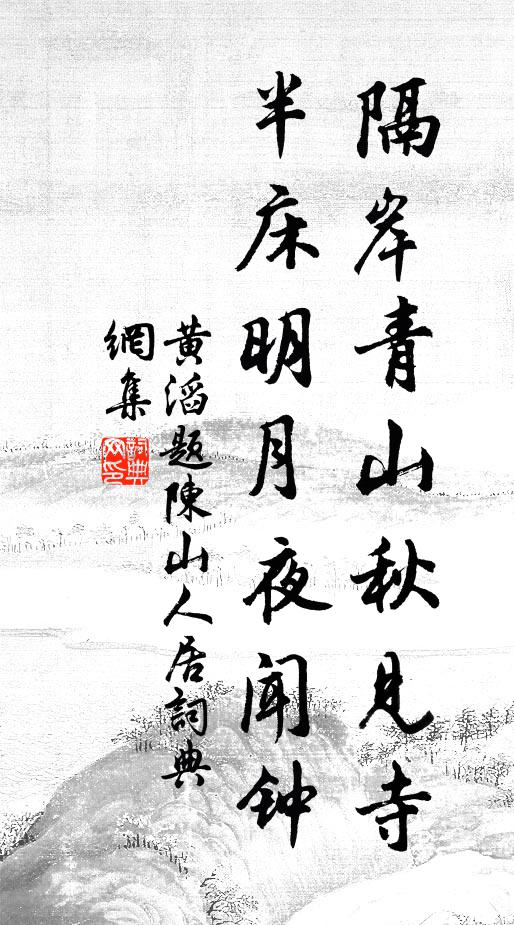 隔岸青山秋見寺
半床明月夜闻钟
黄滔题陳山人居詞典
網集
詞典网印